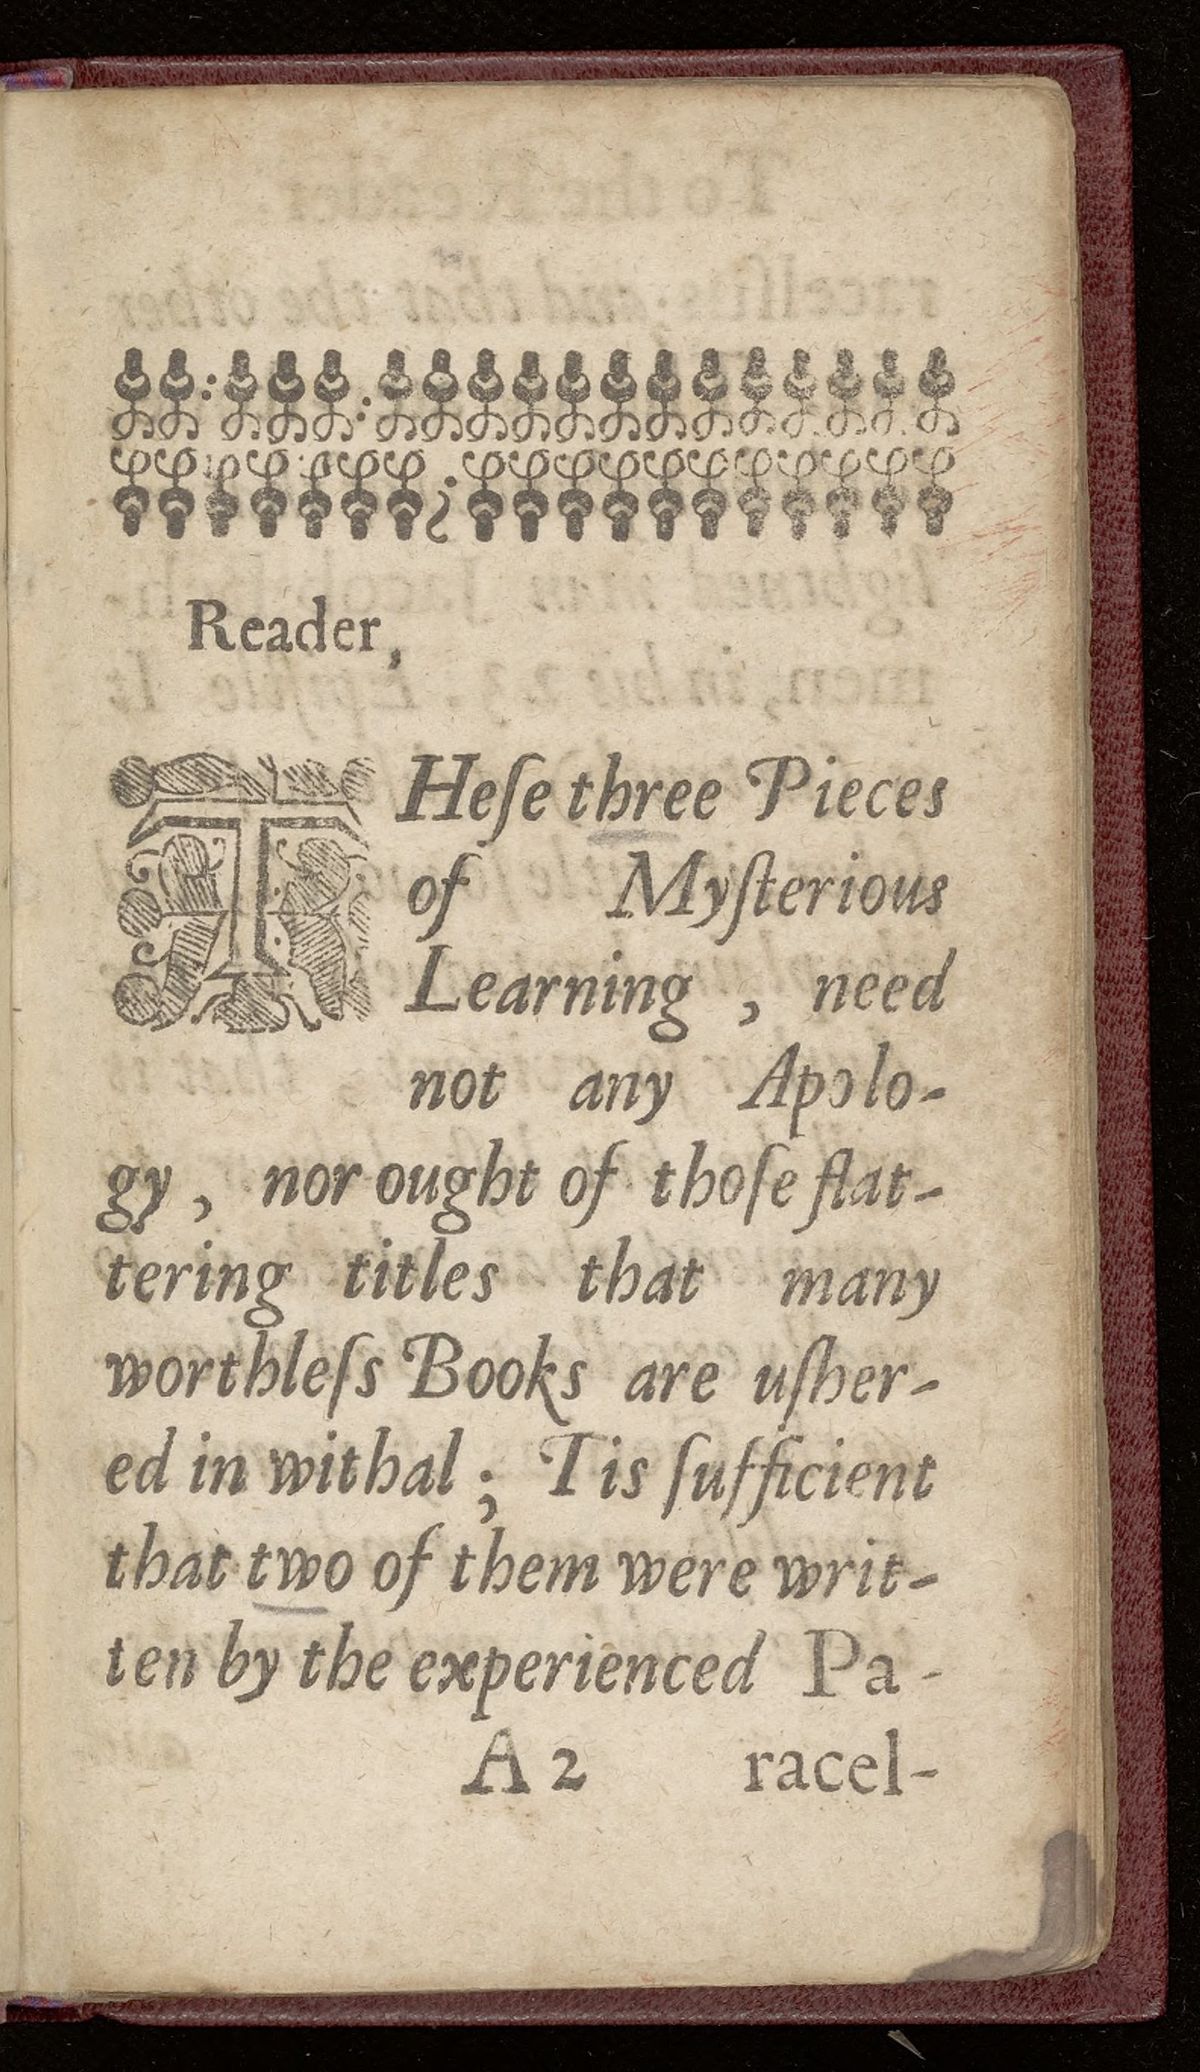 Reader,
THeſe three Pieces
of Myſterious
Learning, need
not any Apolo-
gy, nor ought of thoſe flat-
tering titles that many
worthleſs Books are uſher-
ed in withal; Tis ſufficient
that two of them were writ-
ten by the experienced Pa-
A2 racel-